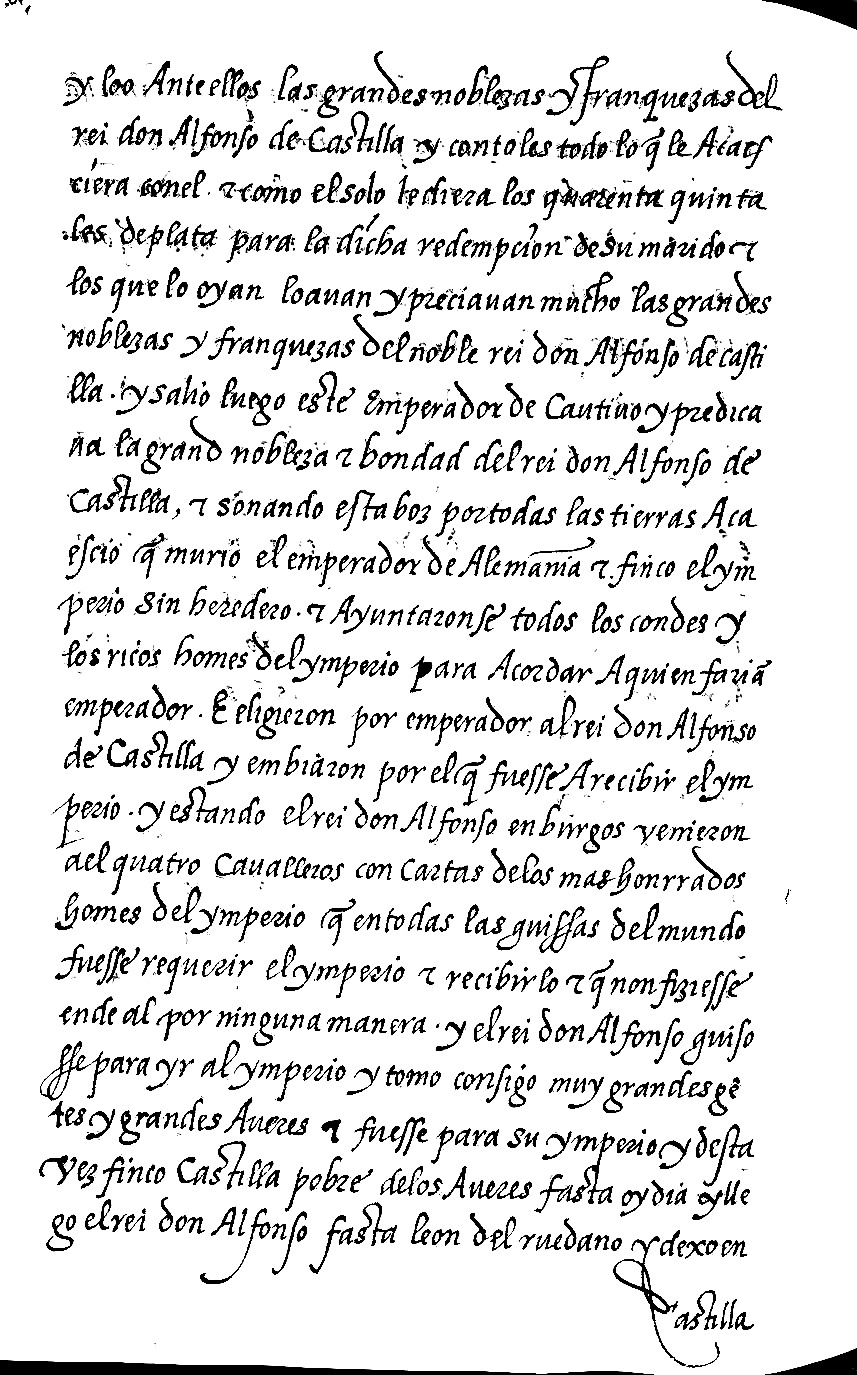 y loo Ante ellos las grandes noblezas y franquezas del
rei don Alfonso de Castilla y contoles todo lo q̃ le Acaes
ciera conel. ⁊ como el solo le diera los quarenta quinta
les de plata para la dicha redempcion de su marido ⁊
los que lo oyan loauan y preciauan mucho las grandes
noblezas y franquezas del noble rei don Alfonso de casti
lla. y salio luego este Emperador de Cautiuo y predica
ua la grand nobleza ⁊ bondad del rei don Alfonso de
Castilla, ⁊ sonando esta boz por todas las tierras Aca
escio q̃ murio el emperador de Alemania ⁊ finco el ym̃
perio sin heredero. ⁊ Ayuntaronse todos los condes y
los ricos homes del ymperio para Acordar Aquien fariã
emperador. E eligieron por emperador al rei don Alfonso
de Castilla y embiaron por el q̃ fuesse A recibir el ym
perio. y estando el rei don Alfonso en burgos venieron
a el quatro Caualleros con Cartas delos mas honrrados
homes del ymperio q̃ en todas las guissas del mundo
fuesse requerir el ymperio ⁊ recibirlo ⁊ q̃ non fiziesse
ende al por ninguna manera. y el rei don Alfonso guiso
sse para yr al ymperio y tomo consigo muy grandes gẽ
tes y grandes Aueres ⁊ fuesse para su ymperio y desta
vez finco Castilla pobre delos Aueres fasta oy dia y lle
go el rei don Alfonso fasta leon del ruedano y dexo en
Castilla